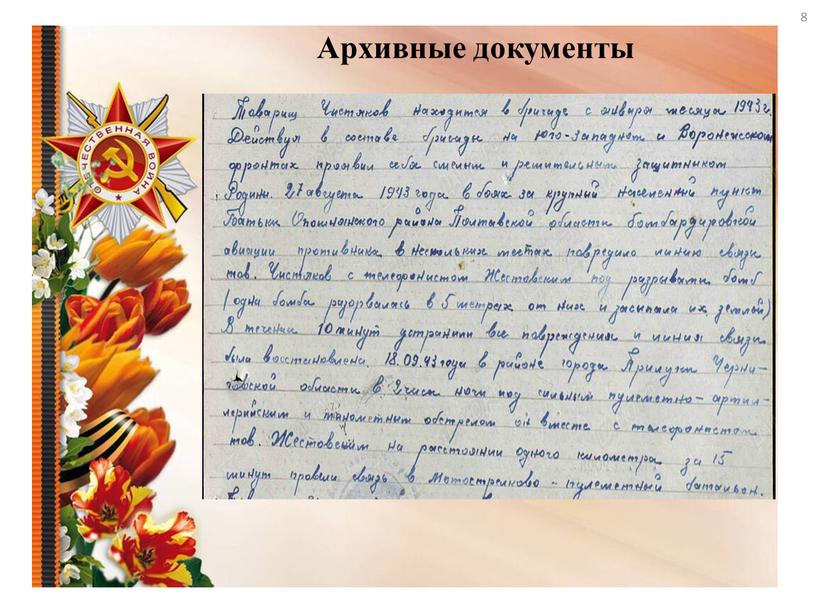 8
Архивные документы
Товарищ Чистяков находится в бригаде с января месяца 1943 г.
Действуя в составе бригады на юго-западном и Воронежском
фронтах проявил себя смелым и решительным защитником
Родины. 27 августа 1943 года в боях за крупный населенный пункт
Батьки Опошнянского района Полтавской области бомбардировкой
авиации противника в нескольких местах повредило линию связи
тов. Чистяков с телефонистом Жестовским под разрывами бомб
(одна бомба разорвалась в 5 метрах от них и засыпала их землей)
В течении 10 минут устранили все повреждения и линия связи
была восстановлена. 18.09.43 года в районе города Прилуки Черни-
говской области в 2 часа ночи под сильным пулеметно-артил-
лерийским и минометным обстрелом он вместе с телефонистом
тов. Жестовским на расстоянии одного километра за 15
минут провели связь в мотострелково-пулеметный батальон.
ОТЕЧЕСТВЕННАЯ ВОЙНА